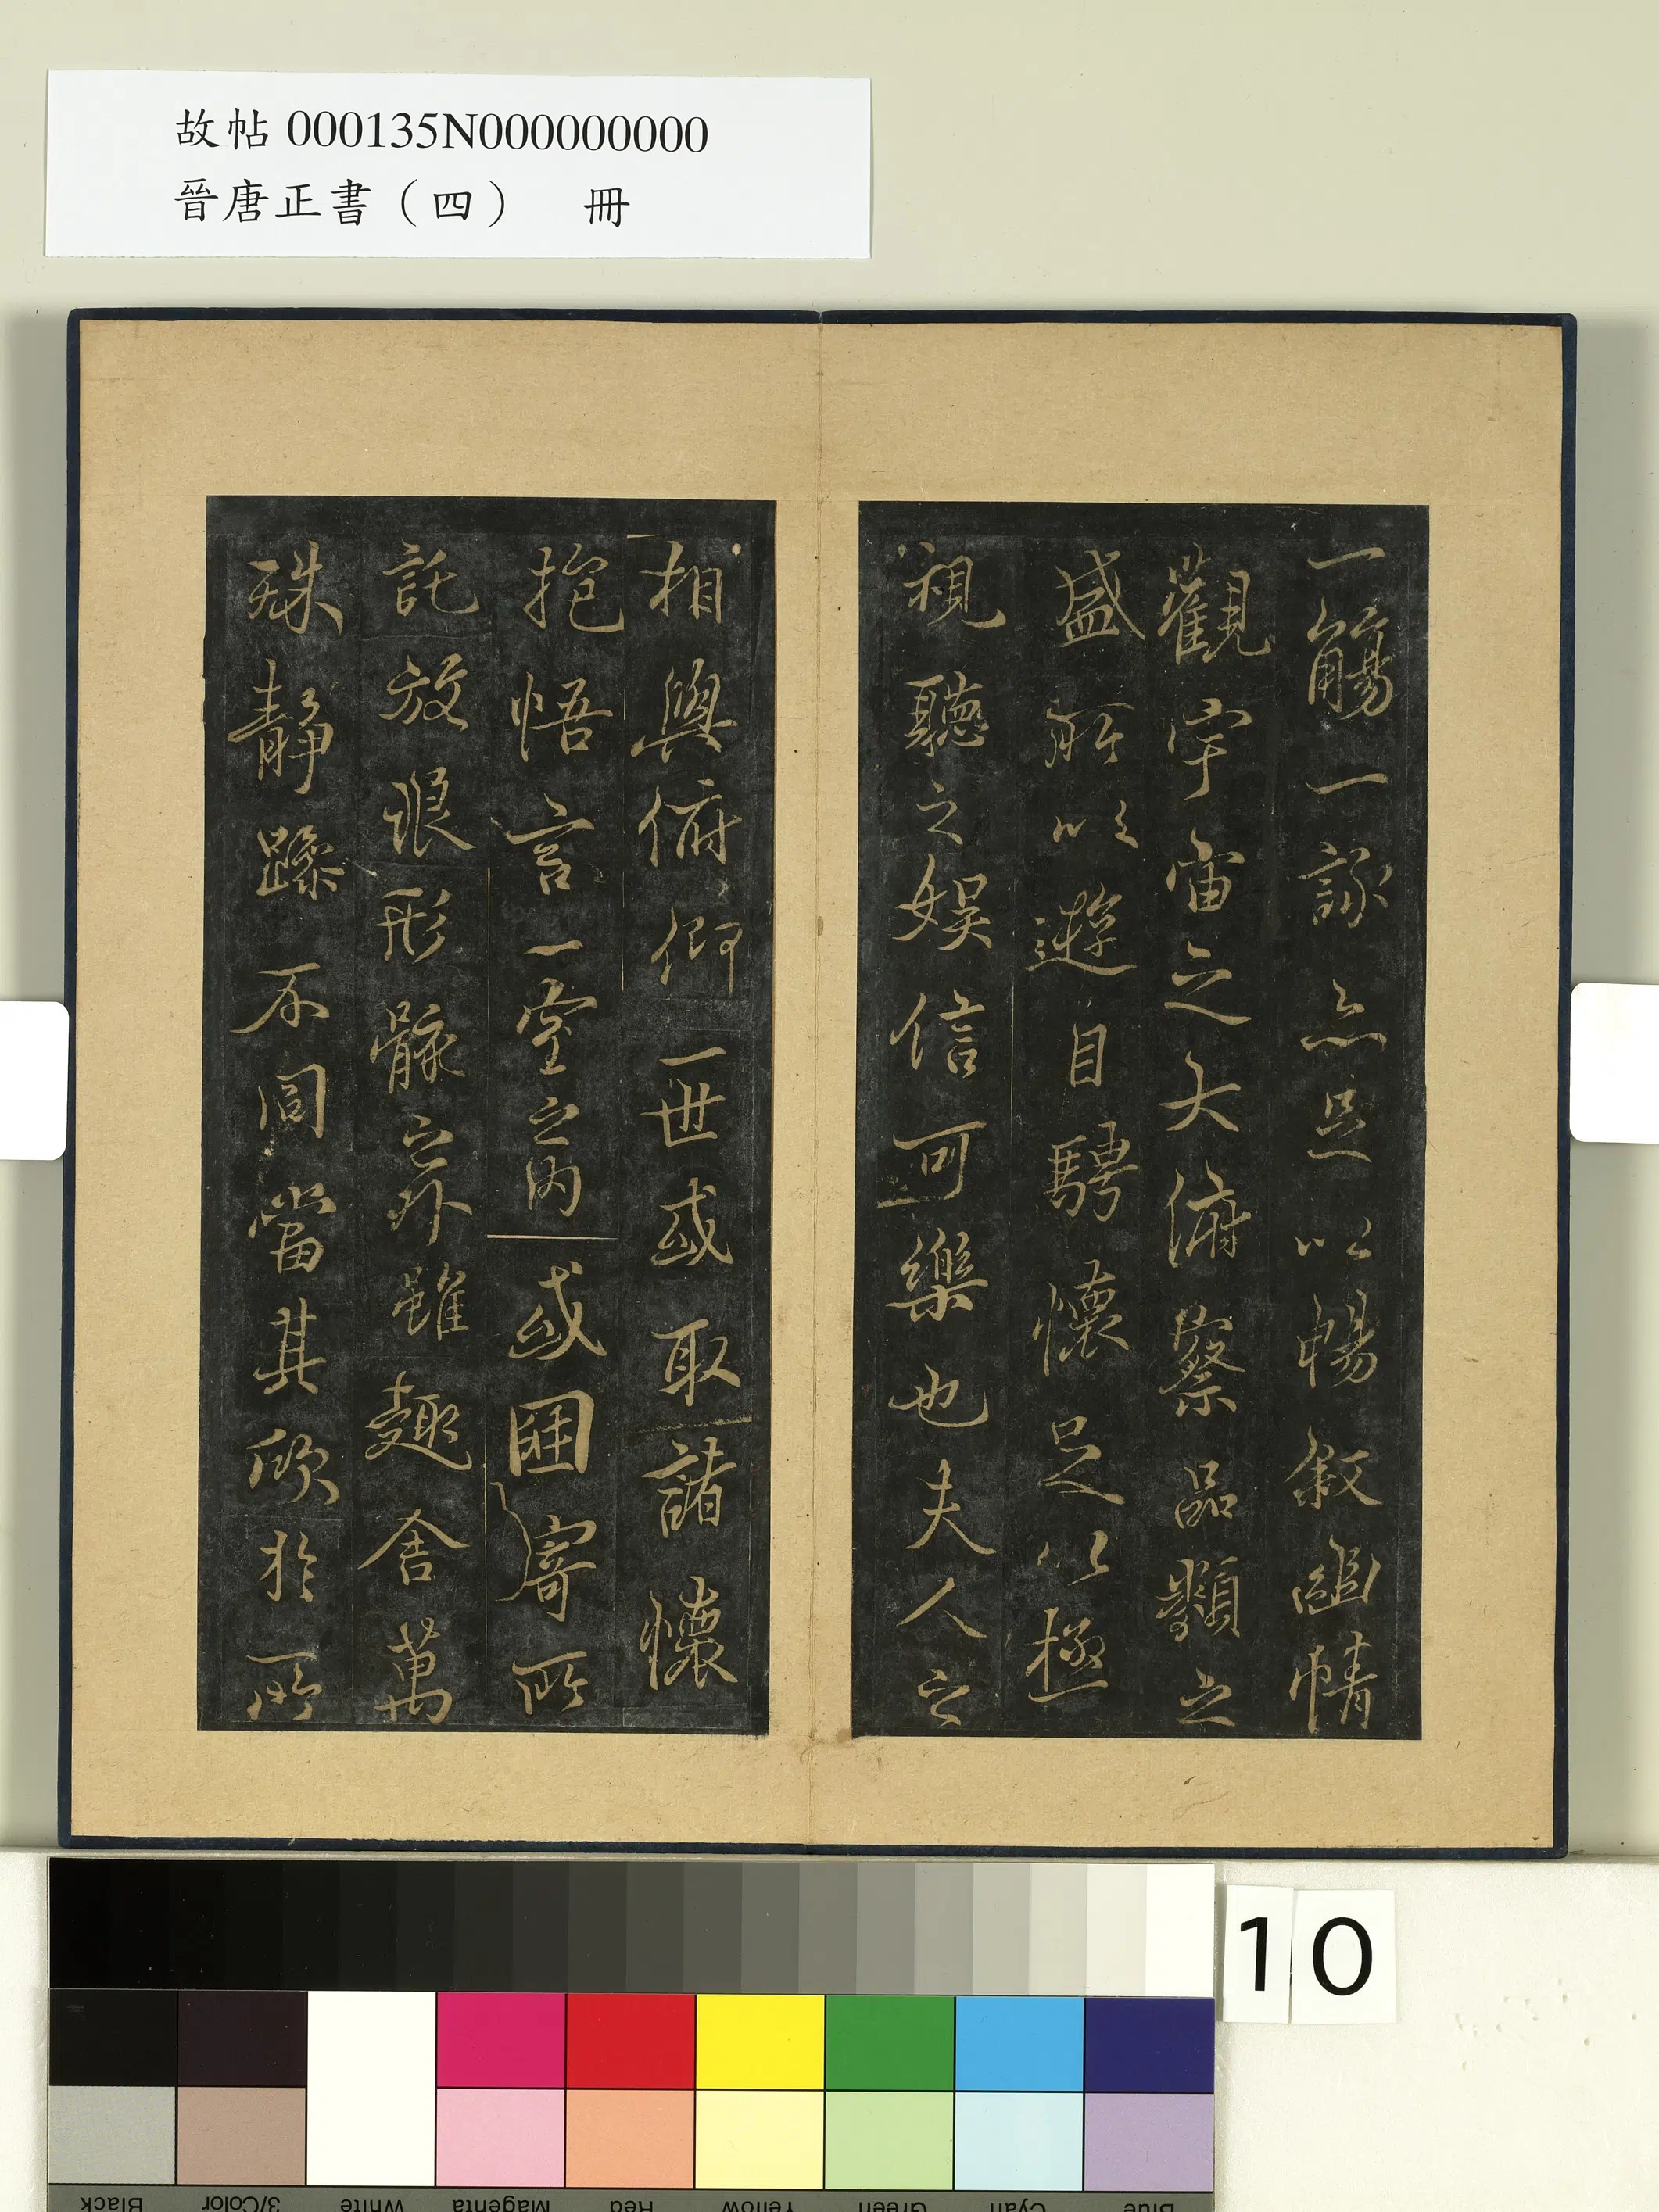 故帖 000135N000000000
晉唐正書（四） 冊
一觴一詠亦足以暢叙幽情
觀宇宙之大俯察品類之
盛所以遊目騁懷足以極
視聽之娛信可樂也夫人之
相與俯仰一世或取諸懷
抱悟言一室之內或因寄所
託放浪形骸之外雖趣舍萬
殊靜躁不同當其欣於所
10
Blue Cyan Green Yellow Red Magenta White 3/Color Black